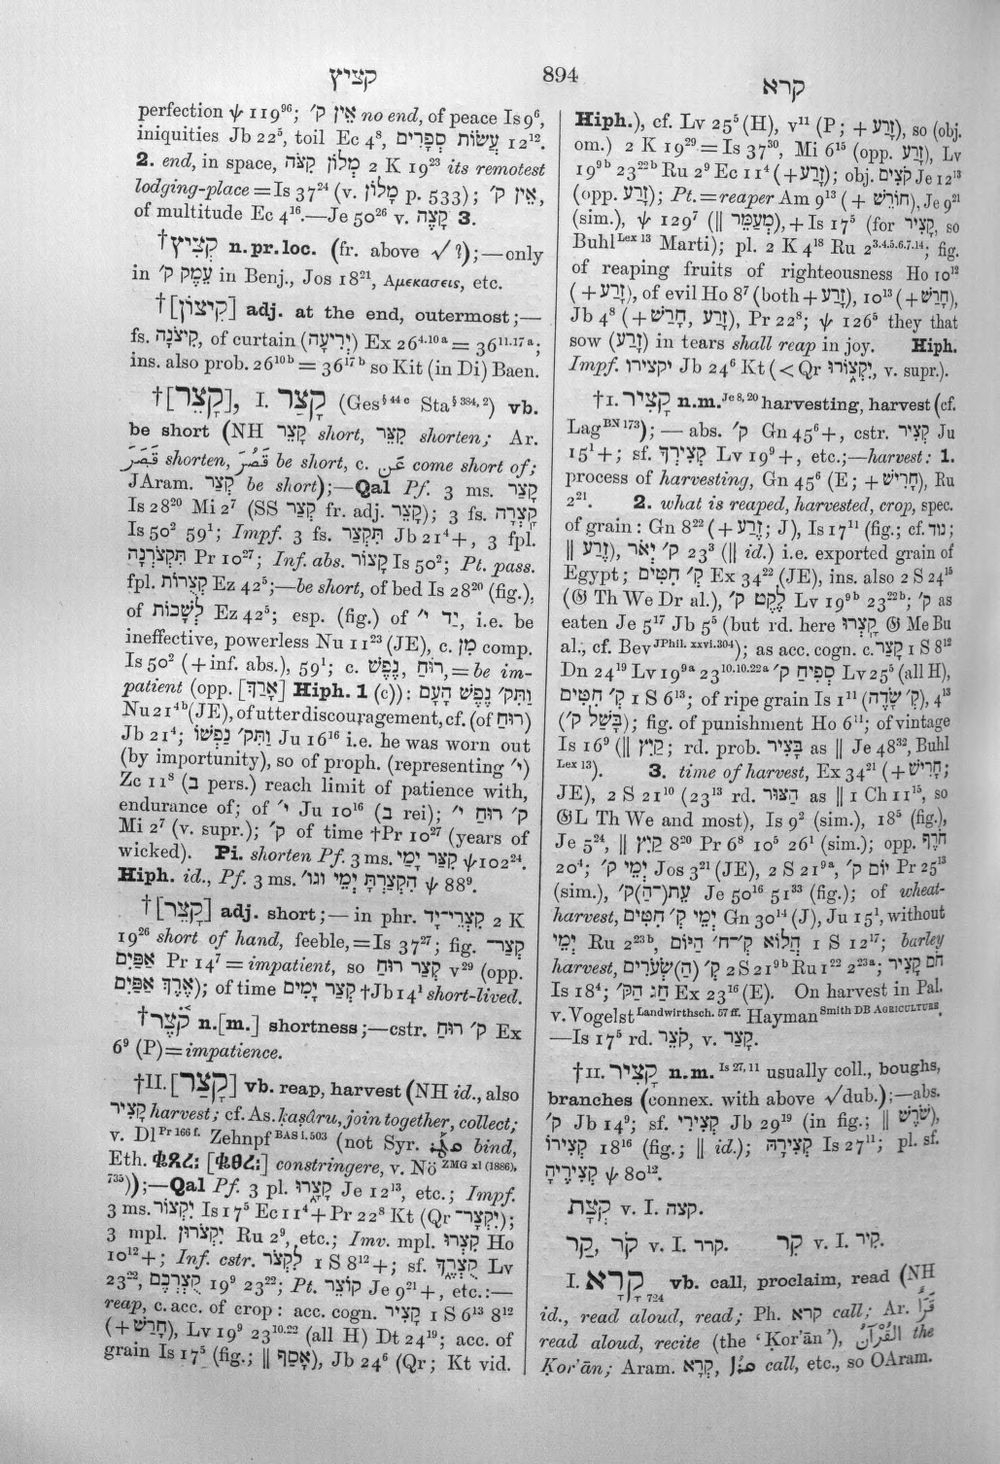 קציץ
894
קרא
perfection ψ 119⁹⁶; אֵין ק׳ no end, of peace Is 9⁶,
iniquities Jb 22⁵, toil Ec 4⁸, עֲשׂוֹת סְפָרִים 12¹².
2. end, in space, מְלוֹן קִצֹּה 2 K 19²³ its remotest
lodging-place = Is 37²⁴ (v. מָלוֹן p. 533); אֵין ק׳,
of multitude Ec 4¹⁶.—Je 50²⁶ v. קָצֶה 3.
†קְצִיץ n.pr.loc. (fr. above √ ?);—only
in עֵמֶק ק׳ in Benj., Jos 18²¹, Αμεκασεις, etc.
†[קִיצוֹן] adj. at the end, outermost;—
fs. קִיצֹנָה, of curtain (יְרִיעָה) Ex 26⁴·¹⁰ᵃ = 36¹¹·¹⁷ᵃ;
ins. also prob. 26¹⁰ᵇ = 36¹⁷ᵇ so Kit (in Di) Baen.
†[קָצֵר], I. קָצַר (Ges§44c Sta§384,2) vb.
be short (NH קָצֵר short, קִצֵּר shorten; Ar.
قَصَرَ shorten, قَصُرَ be short, c. عَن come short of;
JAram. קְצַר be short);—Qal Pf. 3 ms. קָצַר
Is 28²⁰ Mi 2⁷ (SS קְצַר fr. adj. קָצֵר); 3 fs. קָצְרָה
Is 50² 59¹; Impf. 3 fs. תִּקְצַר Jb 21⁴+, 3 fpl.
תִּקְצֹרְנָה Pr 10²⁷; Inf. abs. קָצוֹר Is 50²; Pt. pass.
fpl. קְצֻרוֹת Ez 42⁵;—be short, of bed Is 28²⁰ (fig.),
of לְשָׁכוֹת Ez 42⁵; esp. (fig.) of יַד י׳, i.e. be
ineffective, powerless Nu 11²³ (JE), c. מִן comp.
Is 50² (+inf. abs.), 59¹; c. רוּחַ, נֶפֶשׁ, = be im-
patient (opp. [אָרַךְ] Hiph. 1 (c)): וַתִּק׳ נֶפֶשׁ הָעָם
Nu 21⁴ᵇ (JE), of utter discouragement, cf. (of רוּחַ)
Jb 21⁴; וַתִּק׳ נַפְשׁוֹ Ju 16¹⁶ i.e. he was worn out
(by importunity), so of proph. (representing י׳)
Zc 11⁸ (בְּ pers.) reach limit of patience with,
endurance of; of י׳ Ju 10¹⁶ (בְּ rei); ק׳ רוּחַ י׳
Mi 2⁷ (v. supr.); ק׳ of time †Pr 10²⁷ (years of
wicked). Pi. shorten Pf. 3 ms. קִצַּר יָמַי ψ 102²⁴.
Hiph. id., Pf. 3 ms. הִקְצַרְתָּ יְמֵי וגו׳ ψ 88⁹.
†[קָצֵר] adj. short;—in phr. קִצְרֵי־יָד 2 K
19²⁶ short of hand, feeble, = Is 37²⁷; fig. קְצַר־
אַפַּיִם Pr 14⁷ = impatient, so קְצַר רוּחַ v²⁹ (opp.
אֶרֶךְ אַפַּיִם); of time קְצַר יָמִים †Jb 14¹ short-lived.
†קֹצֶר n.[m.] shortness;—cstr. ק׳ רוּחַ Ex
6⁹ (P) = impatience.
†II. [קָצַר] vb. reap, harvest (NH id., also
קָצִיר harvest; cf. As. ḳaṣâru, join together, collect;
v. Dl Pr 166 f. Zehnpf BAS i. 503 (not Syr. bind,
Eth. constringere, v. Nö ZMG xl (1886),
735));—Qal Pf. 3 pl. קָצְרוּ Je 12¹³, etc.; Impf.
3 ms. יִקְצוֹר Is 17⁵ Ec 11⁴ + Pr 22⁸ Kt (Qr יִקְצָר־);
3 mpl. יִקְצֹרוּן Ru 2⁹, etc.; Imv. mpl. קִצְרוּ Ho
10¹²+; Inf. cstr. לִקְצֹר 1 S 8¹²+; sf. קֻצְרֶךָ Lv
23²², קֻצְרְכֶם 19⁹ 23²²; Pt. קוֹצֵר Je 9²¹+, etc.:—
reap, c. acc. of crop: acc. cogn. קָצִיר 1 S 6¹³ 8¹²
(+חָרַשׁ), Lv 19⁹ 23¹⁰·²² (all H) Dt 24¹⁹; acc. of
grain Is 17⁵ (fig.; ‖ אָסַף), Jb 24⁶ (Qr; Kt vid.
Hiph.), cf. Lv 25⁵ (H), v¹¹ (P; + זָרַע), so (obj.
om.) 2 K 19²⁹ = Is 37³⁰, Mi 6¹⁵ (opp. זָרַע), Lv
19⁹ᵇ 23²²ᵇ Ru 2⁹ Ec 11⁴ (+זָרַע); obj. קֹצִים Je 12¹³
(opp. זָרַע); Pt. = reaper Am 9¹³ (+ חוֹרֵשׁ), Je 9²¹
(sim.), ψ 129⁷ (‖ מְעַמֵּר), + Is 17⁵ (for קָצִיר, so
Buhl Lex 13 Marti); pl. 2 K 4¹⁸ Ru 2³·⁴·⁵·⁶·⁷·¹⁴; fig.
of reaping fruits of righteousness Ho 10¹²
(+זָרַע), of evil Ho 8⁷ (both + זָרַע), 10¹³ (+חָרַשׁ),
Jb 4⁸ (+חָרַשׁ, זָרַע), Pr 22⁸; ψ 126⁵ they that
sow (זָרַע) in tears shall reap in joy. Hiph.
Impf. יקצירו Jb 24⁶ Kt (< Qr יִקְצוֹרוּ, v. supr.).
†I. קָצִיר n.m. Je 8, 20 harvesting, harvest (cf.
Lag BN 173);—abs. ק׳ Gn 45⁶+, cstr. קְצִיר Ju
15¹+; sf. קְצִירְךָ Lv 19⁹+, etc.;—harvest: 1.
process of harvesting, Gn 45⁶ (E; +חָרִישׁ), Ru
2²¹. 2. what is reaped, harvested, crop, spec.
of grain: Gn 8²² (+זֶרַע; J), Is 17¹¹ (fig.; cf. נוד;
‖ זֶרַע), ק׳ יְאֹר 23³ (‖ id.) i.e. exported grain of
Egypt; ק׳ חִטִּים Ex 34²² (JE), ins. also 2 S 24¹⁵
(𝔊 Th We Dr al.), לֶקֶט ק׳ Lv 19⁹ᵇ 23²²ᵇ; ק׳ as
eaten Je 5¹⁷ Jb 5⁵ (but rd. here קָצְרוּ 𝔊 Me Bu
al., cf. Bev JPhil. xxvi. 304); as acc. cogn. c. קָצַר 1 S 8¹²
Dn 24¹⁹ Lv 19⁹ᵃ 23¹⁰·¹⁰·²²ᵃ סְפִיחַ ק׳ Lv 25⁵ (all H),
ק׳ חִטִּים 1 S 6¹³; of ripe grain Is 1¹¹ (ק׳ שָׂדֶה), 4¹³
(בָּשַׁל ק׳); fig. of punishment Ho 6¹¹; of vintage
Is 16⁹ (‖ קַיִץ; rd. prob. בָּצִיר as ‖ Je 48³², Buhl
Lex 13). 3. time of harvest, Ex 34²¹ (+חָרִישׁ;
JE), 2 S 21¹⁰ (23¹³ rd. הַצּוּר as ‖ 1 Ch 11¹⁵, so
𝔊L Th We and most), Is 9² (sim.), 18⁵ (fig.),
Je 5²⁴, ‖ קַיִץ 8²⁰ Pr 6⁸ 10⁵ 26¹ (sim.); opp. חֹרֶף
20⁴; יְמֵי ק׳ Jos 3²¹ (JE), 2 S 21⁹ᵃ, יוֹם ק׳ Pr 25¹³
(sim.), עֵת(־הַ)ק׳ Je 50¹⁶ 51³³ (fig.); of wheat-
harvest, יְמֵי ק׳ חִטִּים Gn 30¹⁴ (J), Ju 15¹, without
יְמֵי Ru 2²³ᵇ, הֲלוֹא ק׳־ח׳ הַיּוֹם 1 S 12¹⁷; barley
harvest, ק׳ (הַ)שְׂעֹרִים 2 S 21⁹ᵇ Ru 1²² 2²³ᵃ; חֹם קָצִיר
Is 18⁴; חַג הַקּ׳ Ex 23¹⁶ (E). On harvest in Pal.
v. Vogelst Landwirthsch. 57 ff. Hayman Smith DB AGRICULTURE.
—Is 17⁵ rd. קֹצֵר, v. קָצַר.
†II. קָצִיר n.m. Is 27, 11 usually coll., boughs,
branches (connex. with above √ dub.);—abs.
ק׳ Jb 14⁹; sf. קְצִירִי Jb 29¹⁹ (in fig.; ‖ שֹׁרֶשׁ),
קְצִירוֹ 18¹⁶ (fig.; ‖ id.); קְצִירָהּ Is 27¹¹; pl. sf.
קְצִירֶיהָ ψ 80¹².
קְצָת v. I. קצה.
קֹר, קַר v. I. קרר. קִר v. I. קִיר.
I. קָרָא 724 vb. call, proclaim, read (NH
id., read aloud, read; Ph. קרא call; Ar. قَرَأَ
read aloud, recite (the ‘Ḳor’ān’), القُرْآنُ the
Ḳor’ān; Aram. קְרָא, call, etc., so OAram.